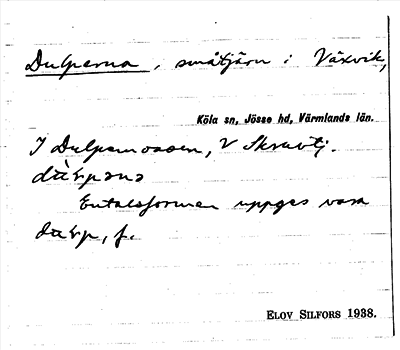 Dulparna, småtjärn i Växvik,
Köla sn, Jösse hd, Värmlands län.
I Dulpemossen, V Skruvtj.
Entalsformen uppges vara
f.
ELOV SILFORS 1938.